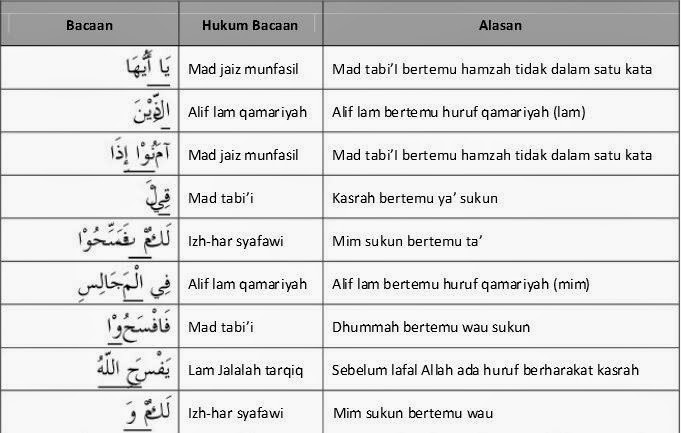 Bacaan Hukum Bacaan Alasan
يَا أَيُّهَا Mad jaiz munfasil Mad tabi’I bertemu hamzah tidak dalam satu kata
الَّذِيْنَ Alif lam qamariyah Alif lam bertemu huruf qamariyah (lam)
آمَنُوْا إِذَا Mad jaiz munfasil Mad tabi’I bertemu hamzah tidak dalam satu kata
قِيْلَ Mad tabi’i Kasrah bertemu ya’ sukun
لَكُمْ تَفَسَّحُوْا Izh-har syafawi Mim sukun bertemu ta’
فِي الْمَجَالِسِ Alif lam qamariyah Alif lam bertemu huruf qamariyah (mim)
فَافْسَحُوْا Mad tabi’i Dhummah bertemu wau sukun
يَفْسَحِ اللَّهُ Lam Jalalah tarqiq Sebelum lafal Allah ada huruf berharakat kasrah
لَكُمْ وَ Izh-har syafawi Mim sukun bertemu wau